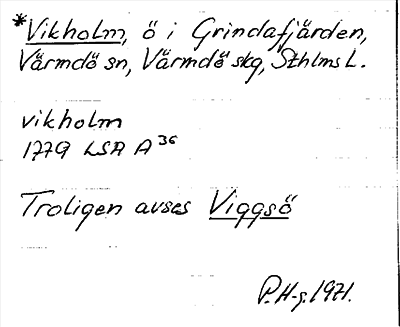 *Vikholm, ö i Grindafjärden,
Värmdö sn, Värmdö skg, Sthlms L.
vikholm
1779 LSA A 36
Troligen avses Viggsö
P.H-g. 1971.